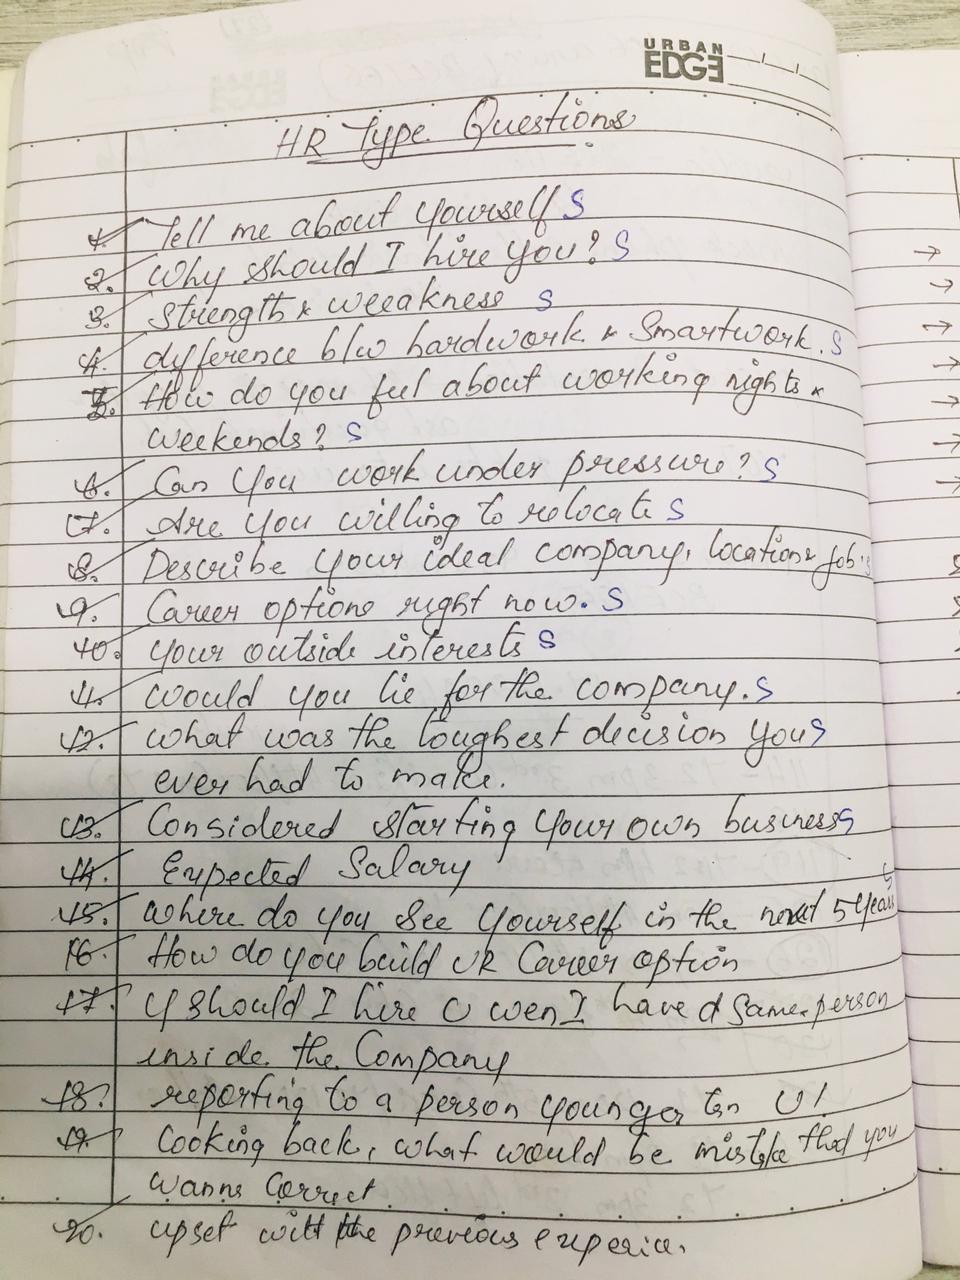 URBAN
EDGE
HR Type Questions
1. Tell me about yourself S
2. Why should I hire you? S
3. Strength & weeakness S
4. difference b/w hardwork & Smartwork. S
5. How do you feel about working nights &
weekends? S
6. Can you work under pressure? S
7. Are you willing to relocate S
8. Describe your ideal company, location & job's
9. Career options right now. S
10. your outside interests S
11. would you lie for the company. S
12. what was the toughest decision you S
ever had to make.
13. Considered starting your own business S
14. Expected Salary
15. where do you see yourself in the next 5 years
16. How do you build UR Career option
17. y should I hire U wen I have d same person
inside the Company
18. reporting to a person younger tn U!
19. Looking back, what would be mistake that you
wanna Correct
20. upset with the previous